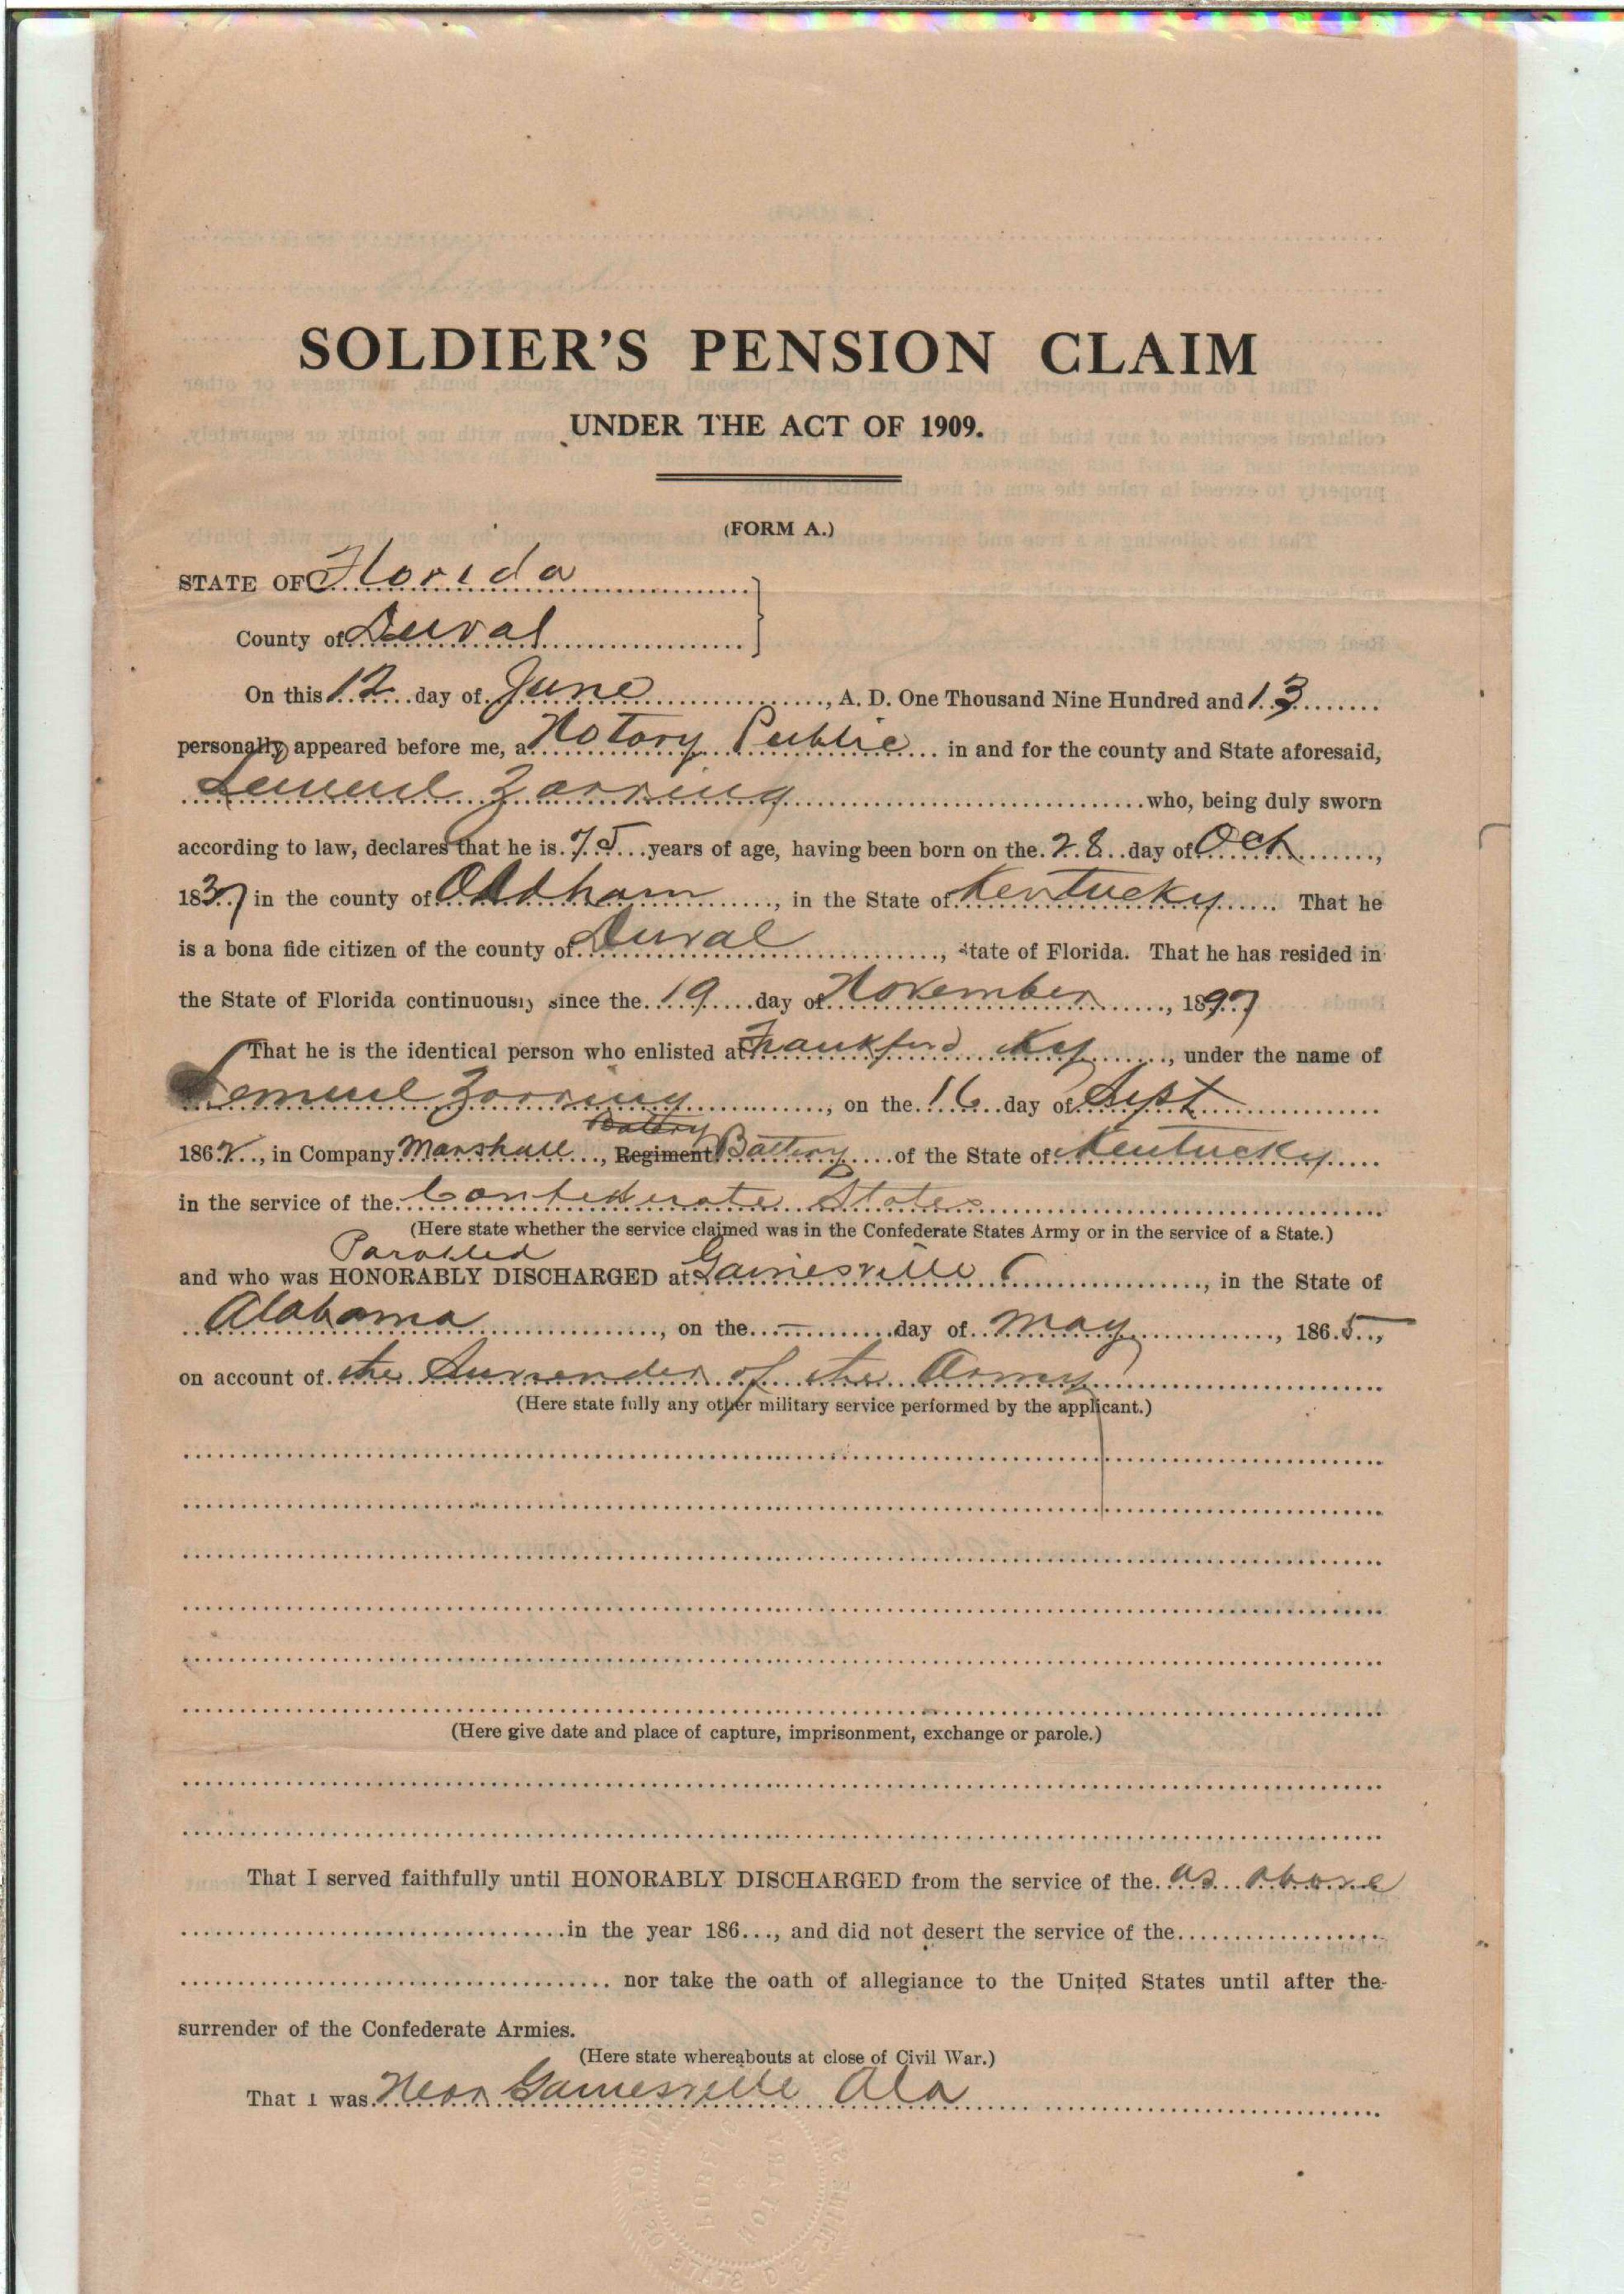 SOLDIER'S PENSION CLAIM
UNDER THE ACT OF 1909.
(FORM A.)
STATE OF Florida
County of Duval
On this 12 day of June, A. D. One Thousand Nine Hundred and 13
personally appeared before me, a Notary Public in and for the county and State aforesaid,
Lemuel Zarring who, being duly sworn
according to law, declares that he is 75 years of age, having been born on the 28 day of Oct,
1837 in the county of Oldham, in the State of Kentucky. That he
is a bona fide citizen of the county of Duval, State of Florida. That he has resided in
the State of Florida continuously since the 19 day of November, 1897
That he is the identical person who enlisted at Frankford Ky, under the name of
Lemuel Zarring, on the 16 day of Sept
Battery
1862, in Company Marshall, Regiment Battery of the State of Kentucky
in the service of the Confederate States
(Here state whether the service claimed was in the Confederate States Army or in the service of a State.)
Parolled
and who was HONORABLY DISCHARGED at Gainesville, in the State of
Alabama, on the — day of May, 1865,
on account of the Surrender of the Army
(Here state fully any other military service performed by the applicant.)
(Here give date and place of capture, imprisonment, exchange or parole.)
That I served faithfully until HONORABLY DISCHARGED from the service of the as above
in the year 186..., and did not desert the service of the
nor take the oath of allegiance to the United States until after the
surrender of the Confederate Armies.
(Here state whereabouts at close of Civil War.)
That I was Near Gainesville Ala